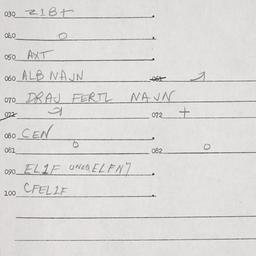 030 Z1B+
040 O
050 AXT
060 ALB NAJN 061
070 DRAJ FERTL NAJN
072 072 +
080 CEN
081 O 082 O
090 EL1F ELFN7
100 CFEL1F